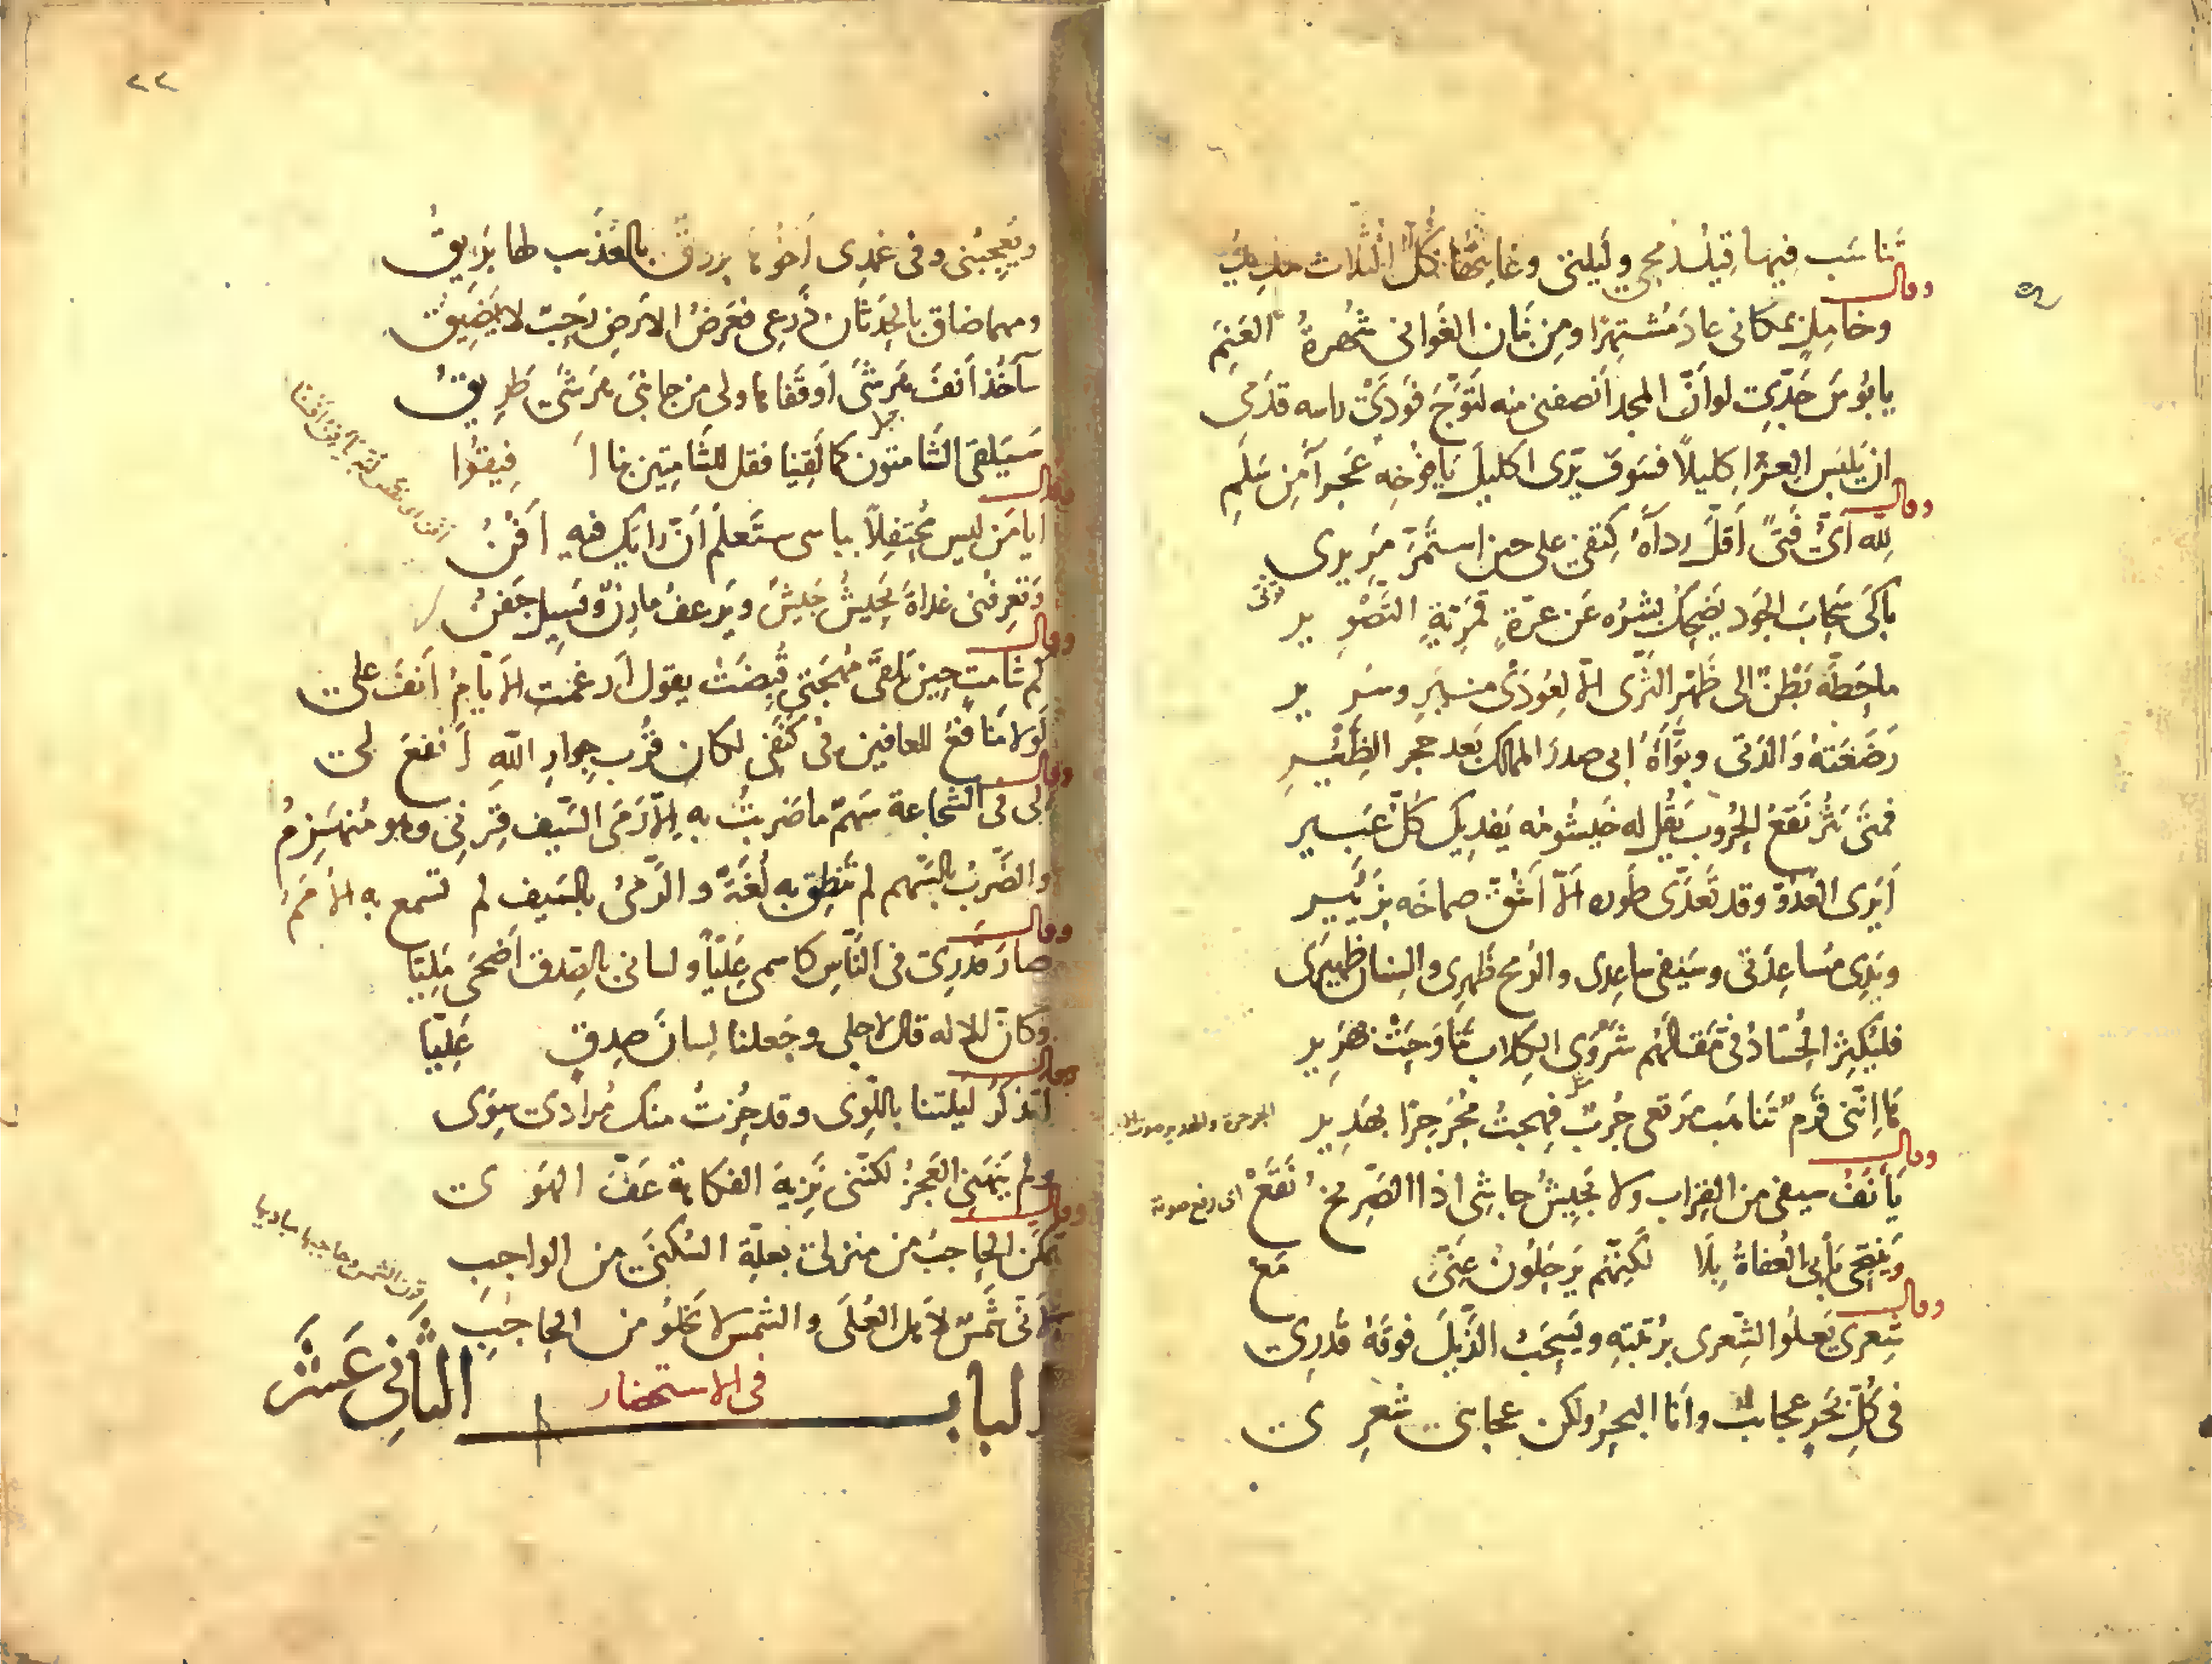 تناسب فيها قيل رمحي وليلتي وغايتها كل الثلاث
وقال
وخامل بمكاني عاد مشتهرا ومن بنان الغواني شهرة العنم
يا بؤس جدي لو أن المجد أنصفني منه لتوج فودي قدمي
ان يلبس العز اكليلا فسوف يرى اكليل يافوخه عجرا من سلم
وقال
لله أي فتى أقل رداءه كتفي على حين استمر مريري
باكي سحاب الجود يضحك بشره عن غرة قمرية التصوير
ما حطه بطن الى ظهر الثرى الا لعوذي منبر وسرير
رضعته والدتي وبوأه ابي صدر الممالك بعد حجر الظئير
فمتى يثر نقع الحروب يقل له خيشومه يفديك كل عبير
أيرى العدو وقد تعدى طوره الا أشق صماخه بزئير
ويدي مساعدتي وسيفي ساعدي والرمح ظهري والسنان ظهيري
فليكثر الحساد في مقالهم شروى الكلاب تناوحت بهرير
اني قرم تناسب مرتعي جرب فهجت مجرجرا بهدير
وقال
يأنف سيفي من القراب ولا يجيش جاشي اذا الصريخ نقع
اى رفع صوته
يأبى العفاة بلا لكنهم يرحلون عني مع
وقال
شعري يعلو الشعرى برتبته ويسحب الذيل فوقه قدري
في كل بحر عجائب وأنا البحر ولكن عجائبي شعري
٢٢
ويعجبني وفي غمدي أخو بالعذب لها بريق
ومهما ضاق بالحدثان ذرعي فعرض الارض رحب لا يضيق
سآخذ أنف هرشى أو قفاها ولي من جانبي هرشى طريق
سيلقى الشامتون كما لقينا فقل للشامتين بنا أفيقوا
وقال
أيا من ليس محتفلا بباسي ستعلم أن رايك فيه أفن
وتعرفني غداة يجيش جيش ويرعف مارن ويسيل جفن
وقال
كم شامت حين تلقى مهجتي قبضت يقول أرغمت الأيام أنف علي
لولا منافع للعافين في كنفي لكان قرب جوار الله أنفع لي
وقال
لي في الشجاعة سهم ما ضربت به الا رمى السيف قرني وهو منهزم
والضرب بالسهم لم تنطق به لغة والرمي بالسيف لم تسمع به الأمم
وقال
صار قدري في الناس كاسمي عليا ولساني بالصدق أضحى مليا
وكأن الاله قال لاجلي وجعلنا لسان صدق عليا
وقال
أتذكر ليلتنا باللوى وقد حزت منك مرادي سوى
ولم ينهني العجز لكنني نزيه الفكاهة عف الهوى
وقال
تمكن الحاجب من منزلي بعلة السكنى من الواجب
لأنني شمس لاهل العلى والشمس لا تخلو من الحاجب
قرن الشمس وحاجبها
الباب الثاني عشر
في الاستحقار